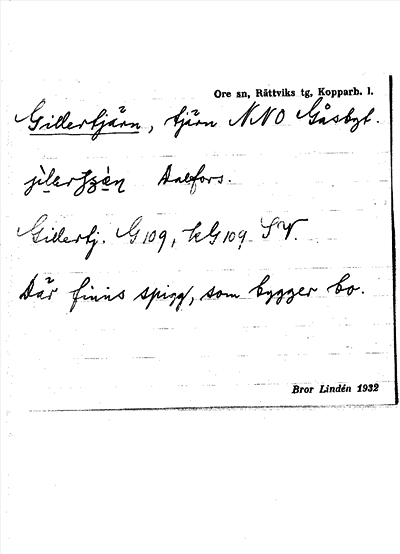 Ore sn, Rättviks tg, Kopparb. l.
Gillertjärn, tjärn NNO Gåsbgt.
Dalfors.
Gillertj. G 109, kG 109 SV.
Där finns spigg, som bygger bo.
Bror Lindén 1932